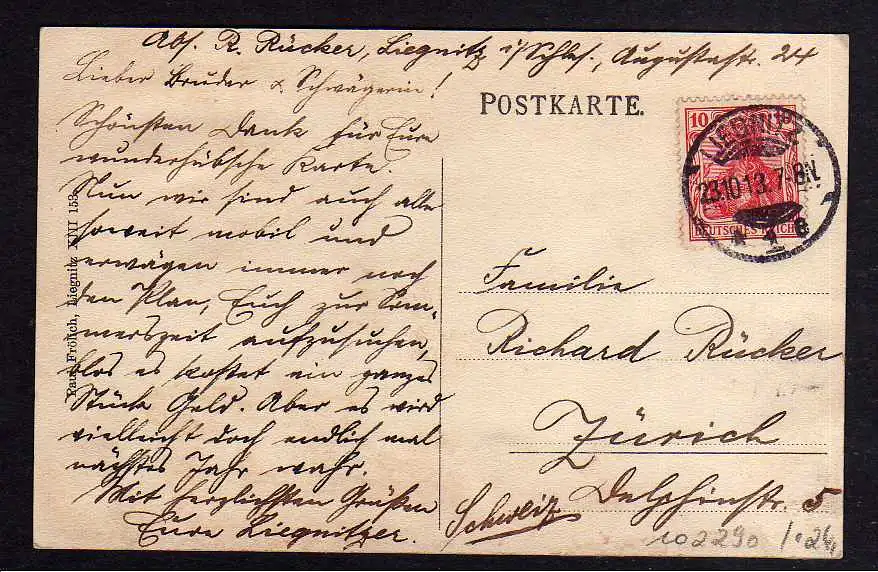 Abs. R. Rücker, Liegnitz i/Schles., Augustastr. 24
Lieber Bruder & Schwägerin!
Schönsten Dank für Eure
wunderhübsche Karte.
Nun wir sind auch alle
soweit mobil und
erwägen immer noch
den Plan, Euch zur Som-
merszeit aufzusuchen,
blos es kostet ein ganzes
Stück Geld. Aber es wird
vielleicht doch endlich mal
nächstes Jahr wahr.
Mit herzlichsten Grüßen
Eure Liegnitzer.
Paul Frölich, Liegnitz XNI 153
POSTKARTE.
10 10
DEUTSCHES REICH
LIEGNITZ
23.10.13.7-8N.
1 e
Familie
Richard Rücker
Zürich
Schweiz
Delphinstr. 5
102290